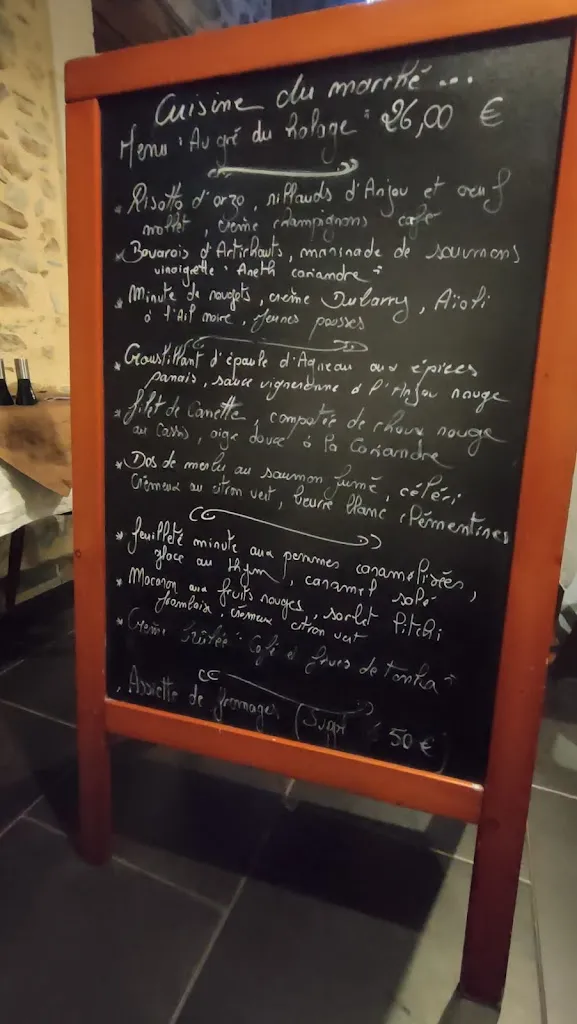 Cuisine du marché ...
Menu : Au gré du halage : 26,00 €
* Risotto d'orzo, rillauds d'Anjou et oeuf
mollet, crème champignons café
* Bavarois d'Artichauts, marinade de saumons
vinaigrette : Aneth coriandre :
* Minute de rougets, crème Dubarry, Aïoli
à l'Ail noir, jeunes pousses
* Croustillant d'épaule d'Agneau aux épices
panais, sauce vigneronne à l'Anjou rouge
* filet de Canette compotée de choux rouge
au Cassis, aigre douce à la Coriandre
* Dos de merlu au saumon fumé, céleri
Crémeux au citron vert, beurre blanc Clémentines
* feuilleté minute aux pommes caramélisées,
glace au thym, caramel salé
* Macaron aux fruits rouges, sorbet litchi
framboise, crémeux citron vert
* Crème brûlée : Café et fèves de tonka
. Assiette de fromages ( 50 €